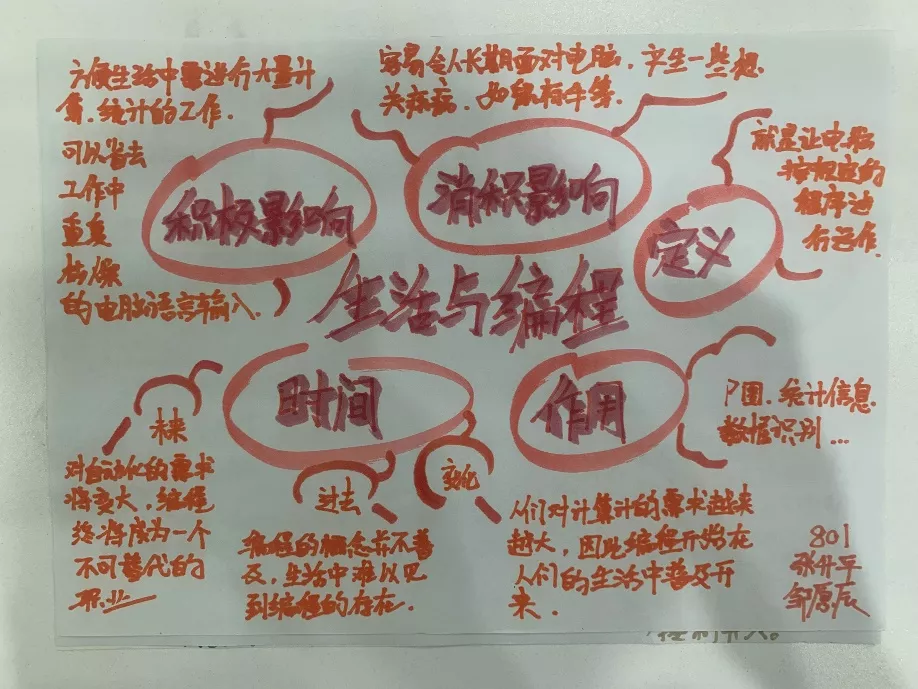 方便生活中需进行大量计
算、统计的工作.
容易令人长期面对电脑，产生一些相
关疾病，如鼠标手等.
可以省去
工作中
重复
枯燥
的电脑语言输入.
积极影响
消积影响
就是让电脑
按规定的
程序进
行运作.
定义
生活与编程
时间
作用
P图、统计信息
数据识别...
未来
对自动化的需求
将变大，编程
终将成为一个
不可替代的
职业
过去
编程的概念并不普
及，生活中难以见
到编程的存在.
变化
人们对计算计的需求越来
越大，因此编程开始在
人们的生活中普及开
来.
801
张升平
邹原辰